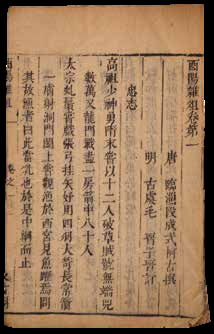 酉陽雜俎卷第一
唐 臨淄段成式柯古撰
明 古虞毛 晉子晉訂
忠志
高祖少神勇隋末嘗以十二人破草賊號無端兒
數萬又龍門戰盡一房箭中八十人
太宗虬鬚嘗戲張弓挂矢好用四羽大笴長常箭
一膚射洞門闔上嘗觀漁於西宮見魚躍焉問
其故漁者曰此當乳也於是中網而止
酉陽雜俎 卷之一